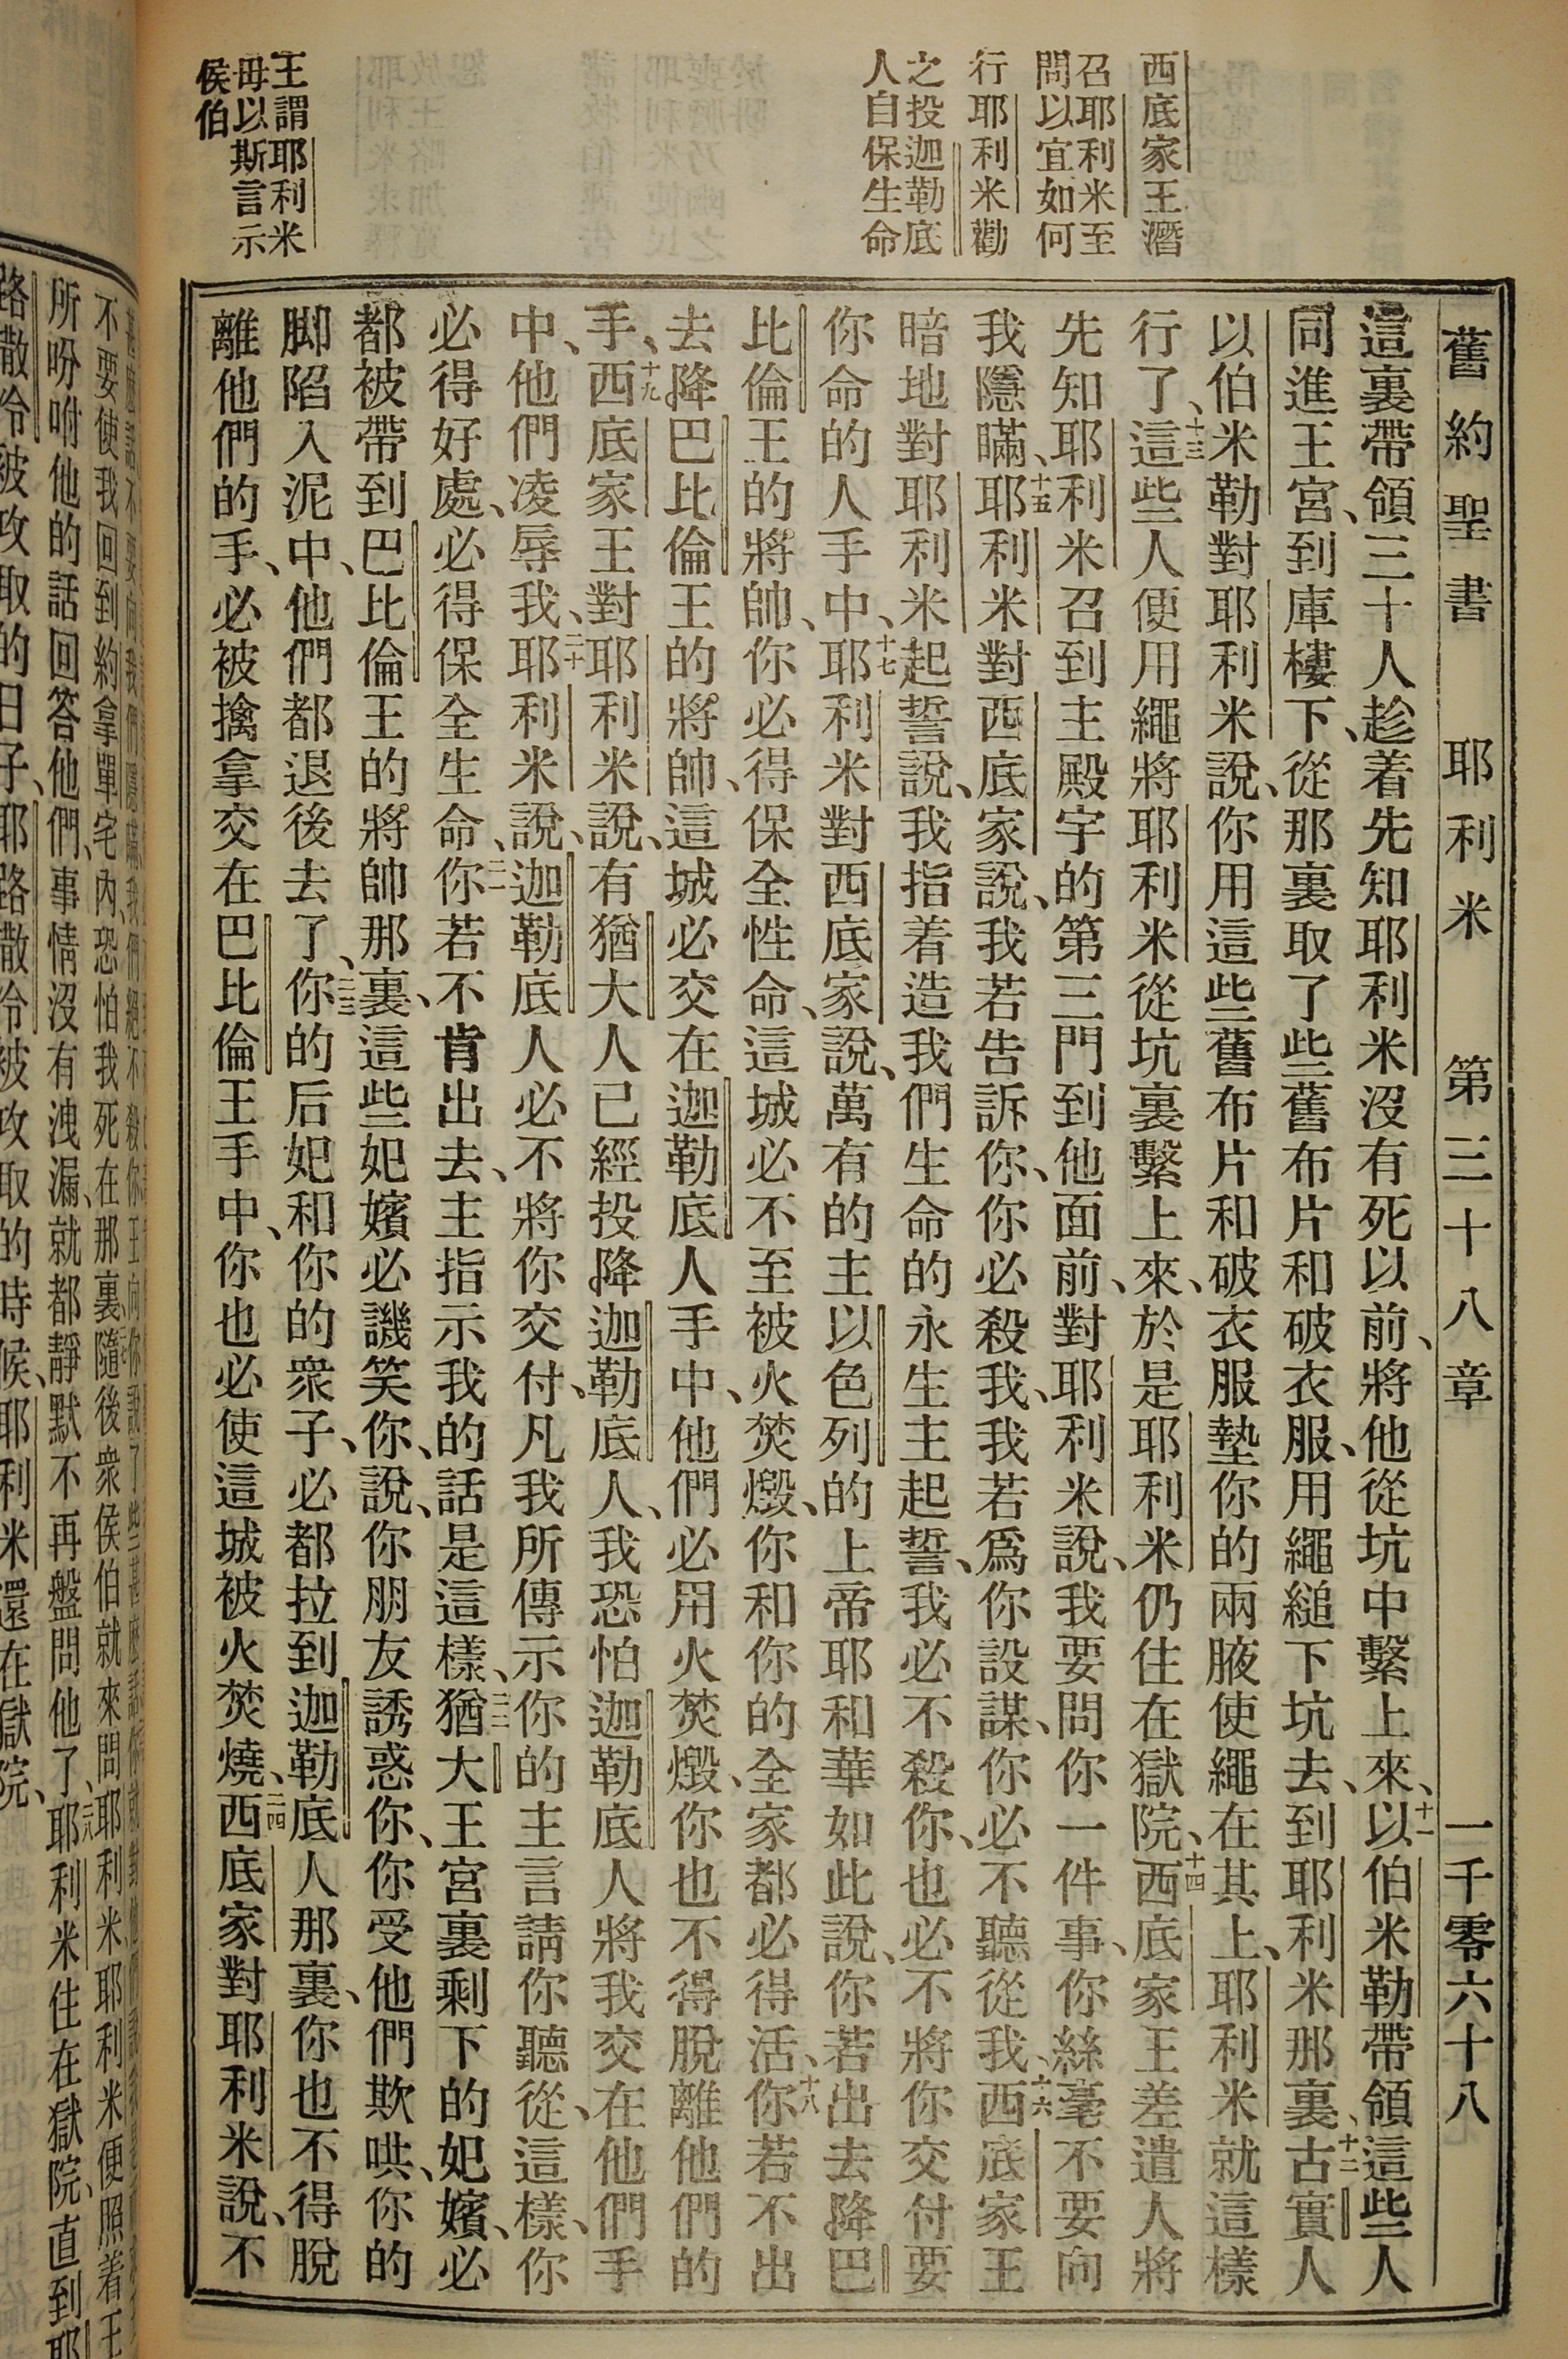 舊約聖書 耶利米 第三十八章 一千零六十八
西底家王潛
召耶利米至
問以宜如何
行耶利米勸
之投迦勒底
人自保生命
王謂耶利米
毋以斯言示
侯伯
這裏帶領三十人、趁着先知耶利米沒有死以前、將他從坑中繫上來、十一以伯米勒帶領這些人
同進王宮、到庫樓下、從那裏取了些舊布片和破衣服、用繩縋下坑去、到耶利米那裏、十二古實人
以伯米勒對耶利米說、你用這些舊布片和破衣服墊你的兩腋使繩在其上、耶利米就這樣
行了、十三這些人便用繩將耶利米從坑裏繫上來、於是耶利米仍住在獄院、十四西底家王差遣人將
先知耶利米召到主殿宇的第三門到他面前、對耶利米說、我要問你一件事、你絲毫不要向
我隱瞞、十五耶利米對西底家說、我若告訴你、你必殺我、我若爲你設謀、你必不聽從我、十六西底家王
暗地對耶利米起誓說、我指着造我們生命的永生主起誓、我必不殺你、也必不將你交付要
你命的人手中、十七耶利米對西底家說、萬有的主以色列的上帝耶和華如此說、你若出去降巴
比倫王的將帥、你必得保全性命、這城必不至被火焚燬、你和你的全家都必得活、十八你若不出
去降巴比倫王的將帥、這城必交在迦勒底人手中、他們必用火焚燬、你也不得脫離他們的
手、十九西底家王對耶利米說、有猶大人已經投降迦勒底人、我恐怕迦勒底人將我交在他們手
中、他們凌辱我、二十耶利米說、迦勒底人必不將你交付、凡我所傳示你的主言請你聽從、這樣、你
必得好處、必得保全生命、二一你若不肯出去、主指示我的話是這樣、二二猶大王宮裏剩下的妃嬪、必
都被帶到巴比倫王的將帥那裏、這些妃嬪必譏笑你、說、你朋友誘惑你、你受他們欺哄、你的
脚陷入泥中、他們都退後去了、二三你的后妃和你的衆子、必都拉到迦勒底人那裏、你也不得脫
離他們的手、必被擒拿交在巴比倫王手中、你也必使這城被火焚燒、二四西底家對耶利米說、不
不要使我回到約拿單宅內、恐怕我死在那裏、二七隨後衆侯伯就來問耶利米、耶利米便照着王
所吩咐他的話回答他們、事情沒有洩漏、就都靜默不再盤問他了、二八耶利米住在獄院、直到耶
路撒冷被攻取的日子、耶路撒冷被攻取的時候、耶利米還在獄院、